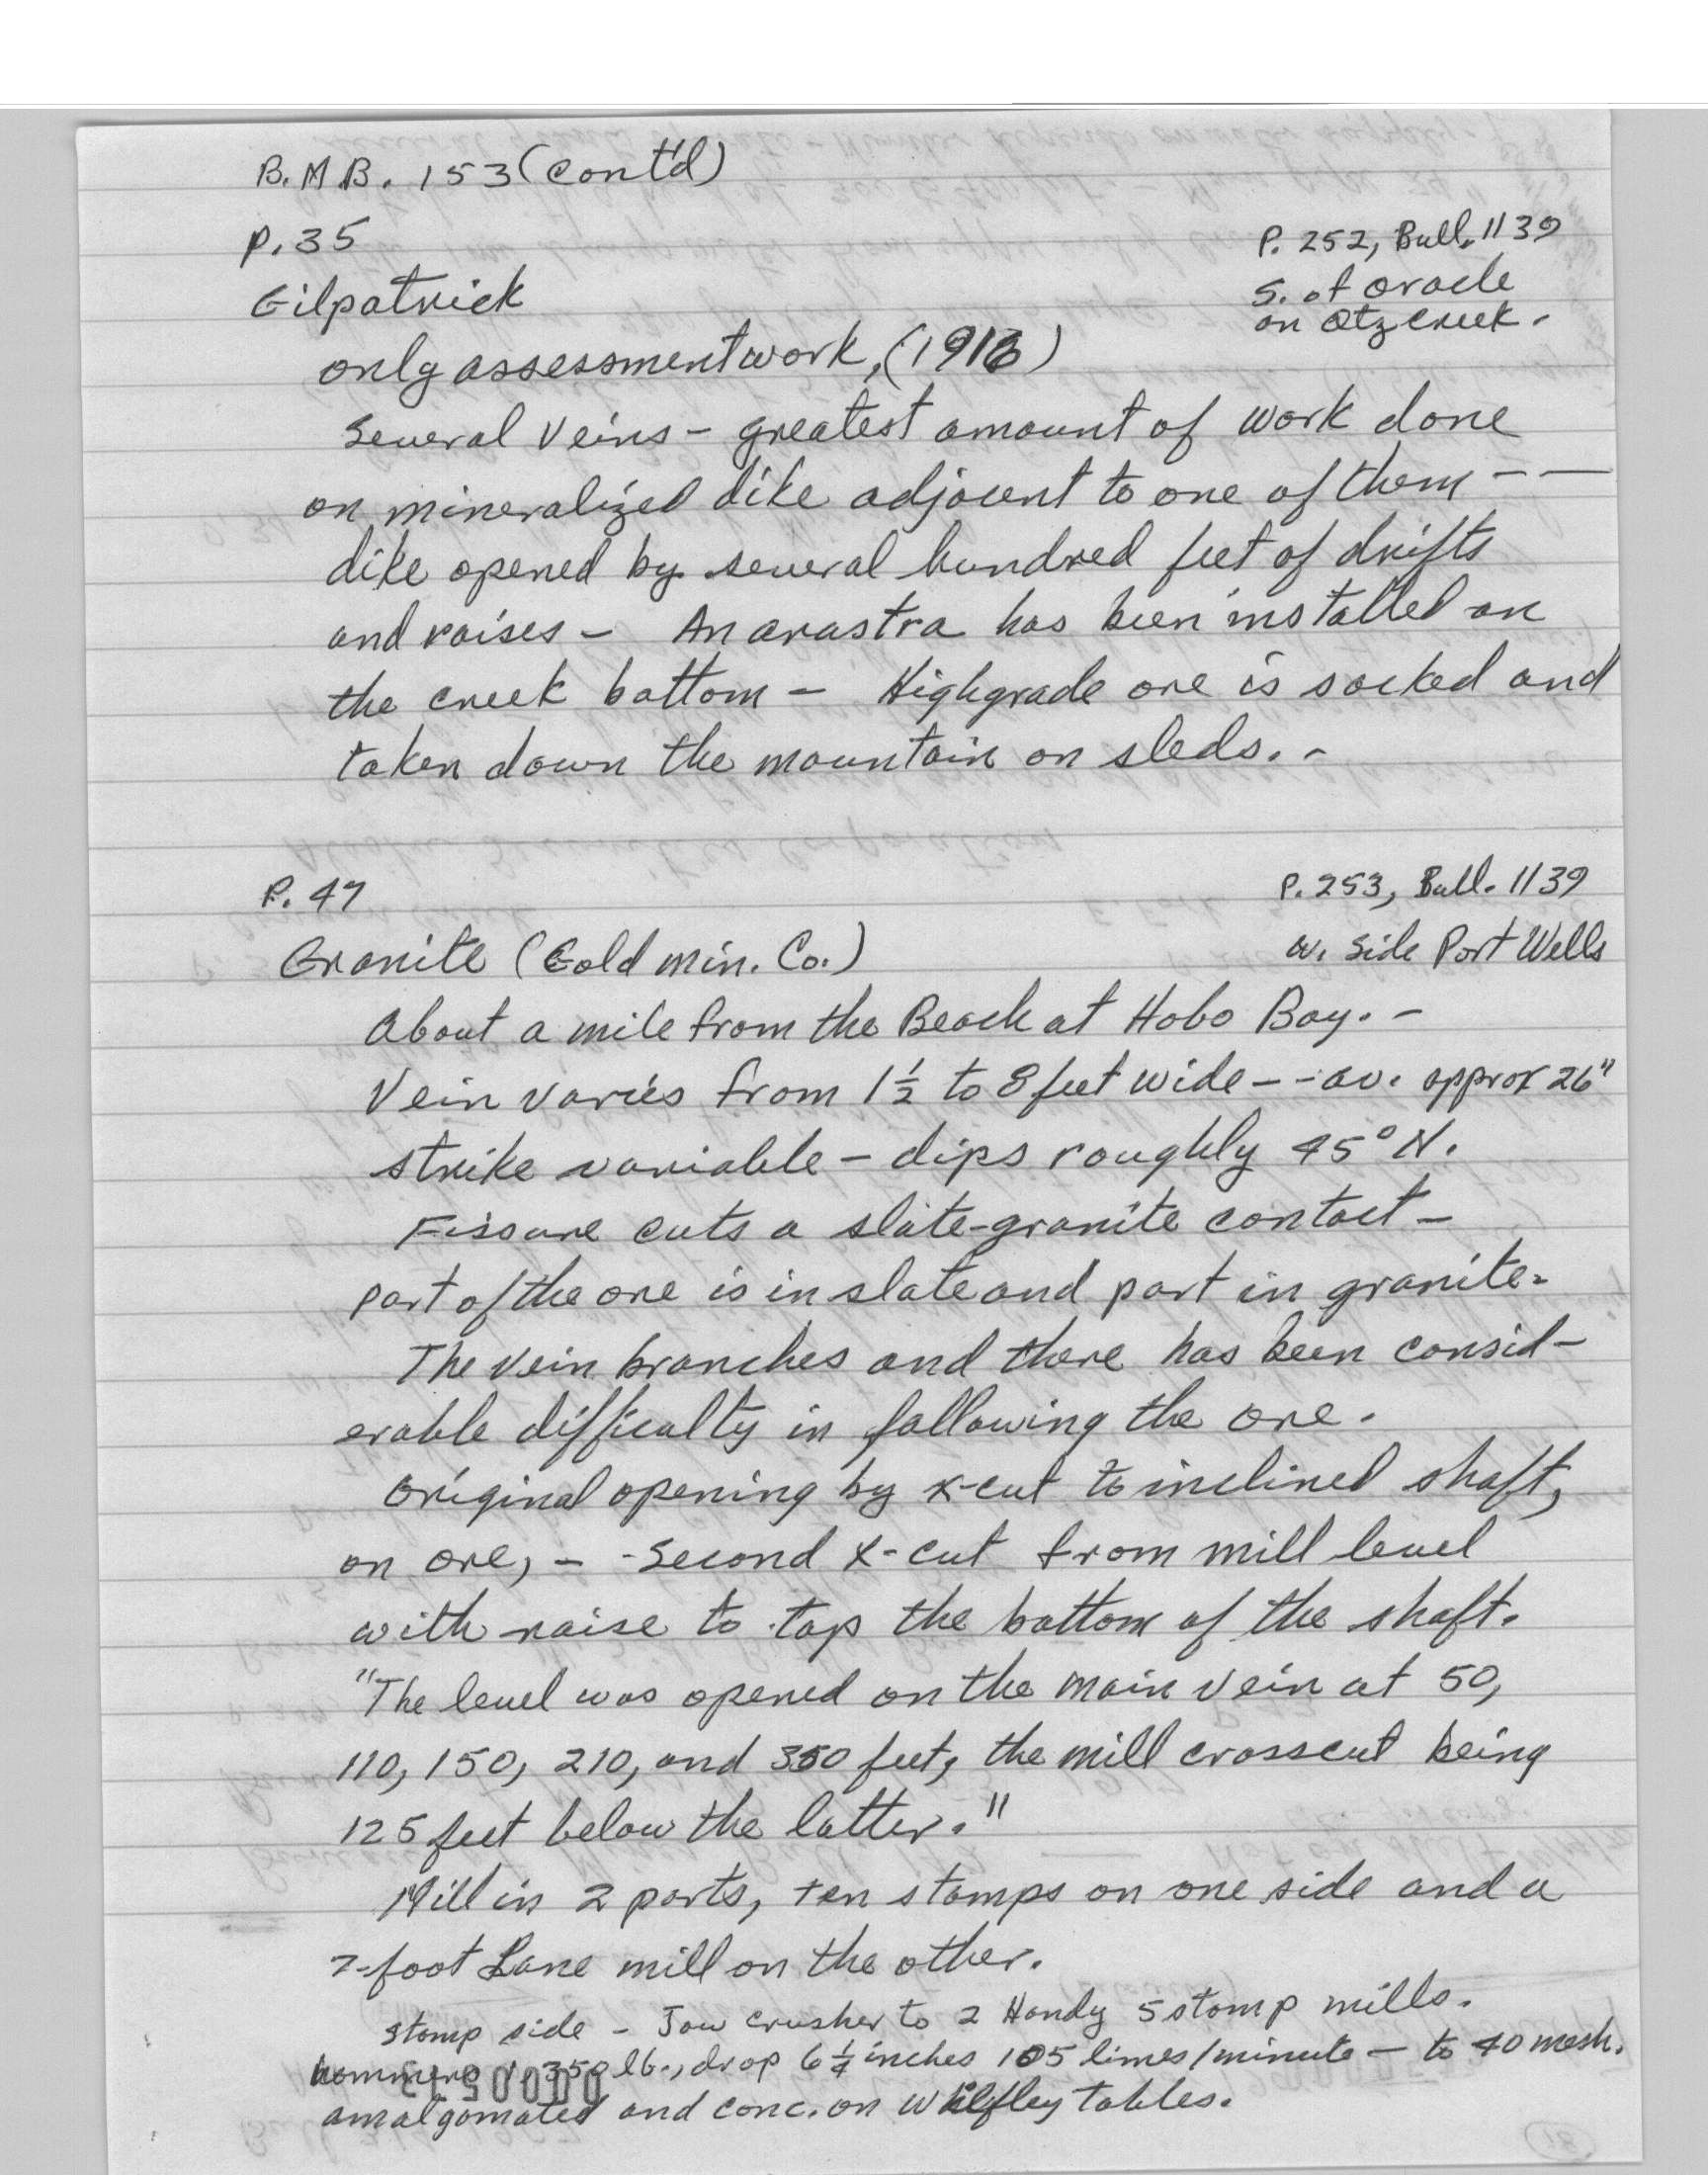 B.M.B. 153 (cont'd)
P. 35
P. 252, Bull. 1139
Gilpatrick
S. of Oracle
on Qtz creek.
only assessment work, (1916)
Several veins - greatest amount of work done
on mineralized dike adjacent to one of them - -
dike opened by several hundred feet of drifts
and raises - An arastra has been installed on
the creek bottom - Highgrade ore is sacked and
taken down the mountain on sleds. -
P. 47
P. 253, Bull. 1139
Granite (Gold min. Co.)
w. side Port Wells
About a mile from the Beach at Hobo Bay. -
Vein varies from 1½ to 8 feet wide - - av. approx 26"
strike variable - dips roughly 45° N.
Fissure cuts a slate-granite contact -
part of the ore is in slate and part in granite.
The vein branches and there has been consid-
erable difficulty in following the ore.
Original opening by x-cut to inclined shaft,
on ore, - - Second x-cut from mill level
with raise to tap the bottom of the shaft.
"The level was opened on the main vein at 50,
110, 150, 210, and 350 feet, the mill crosscut being
125 feet below the latter."
Mill in 2 parts, ten stamps on one side and a
7-foot Lane mill on the other.
stamp side - Jaw crusher to 2 Handy 5 stamp mills.
hammers 1,350 lb., drop 6¼ inches 105 times/minute - to 40 mesh.
amalgamated and conc. on Wilfley tables.